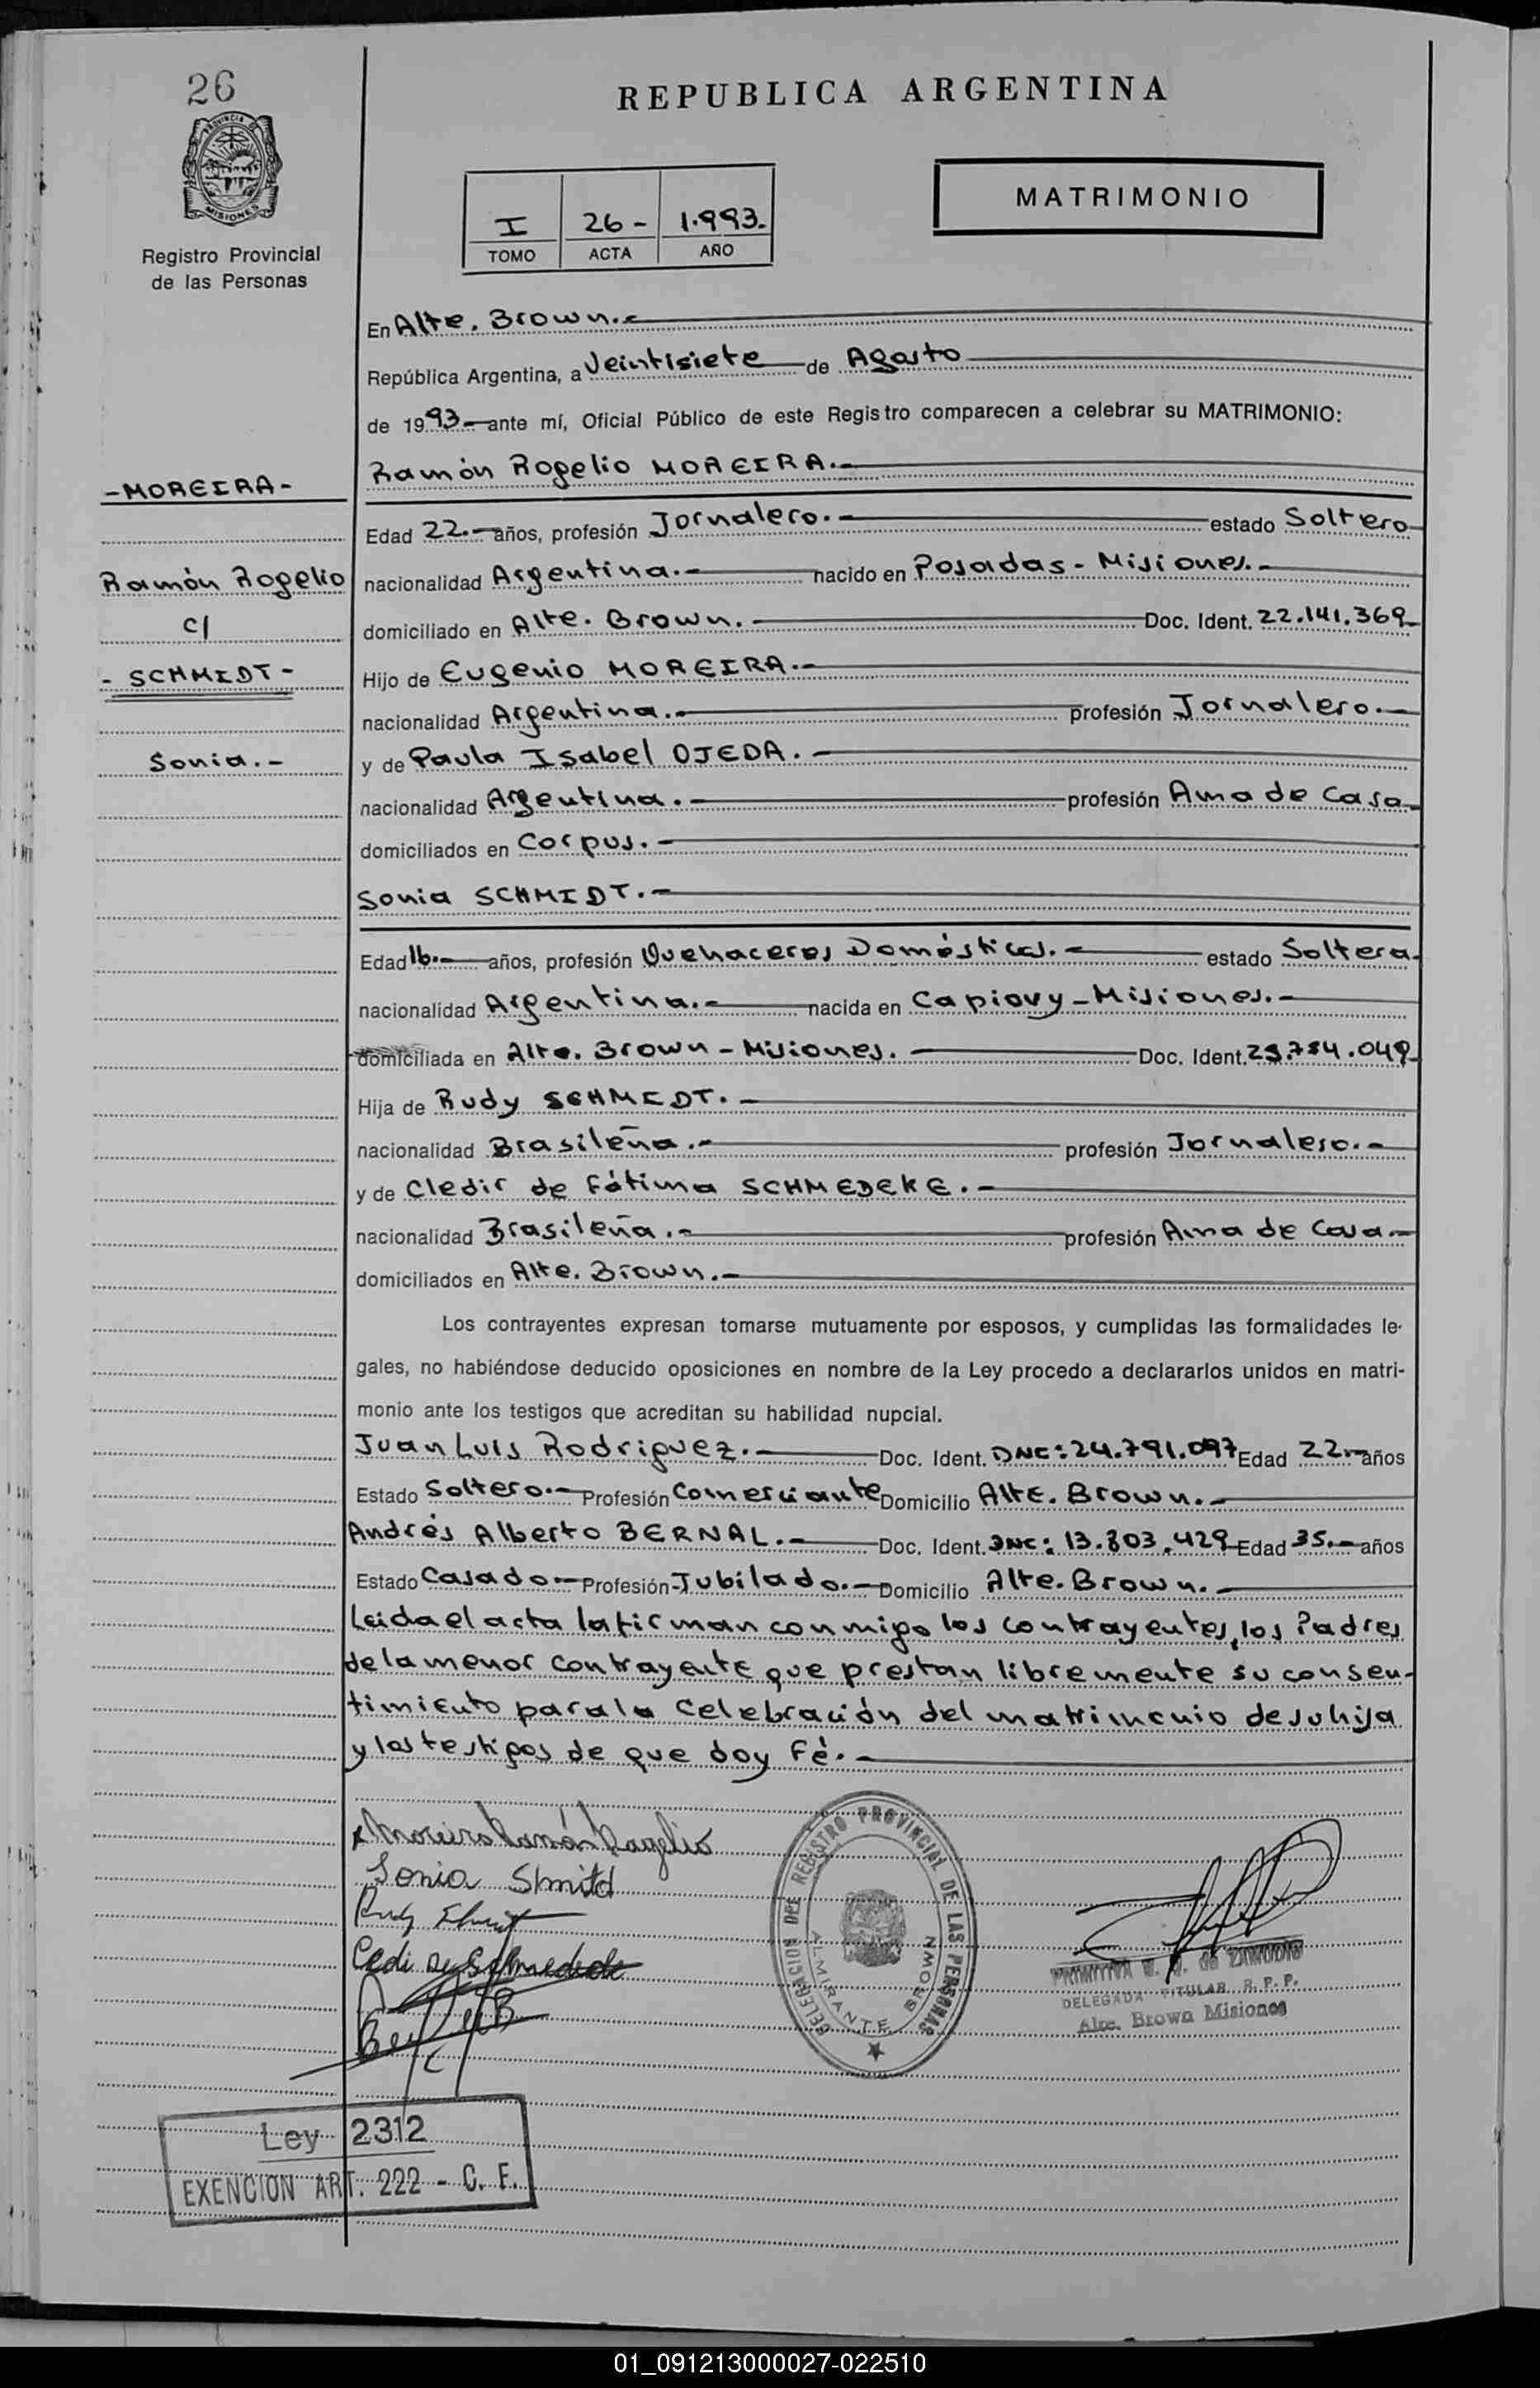 26
REPUBLICA ARGENTINA
PROVINCIA DE
MISIONES
Registro Provincial
de las Personas
I 26- 1.993.
TOMO ACTA AÑO
MATRIMONIO
En Alte. Brown.-
República Argentina, a Veintisiete de Agosto
de 1993.- ante mí, Oficial Público de este Registro comparecen a celebrar su MATRIMONIO:
Ramón Rogelio MOREIRA.-
-MOREIRA-
Edad 22.- años, profesión Jornalero.- estado Soltero
Ramón Rogelio
nacionalidad Argentina.- nacido en Posadas - Misiones.-
c/
domiciliado en Alte. Brown.- Doc. Ident. 22.141.369
- SCHMIDT -
Hijo de Eugenio MOREIRA.-
nacionalidad Argentina.- profesión Jornalero.-
Sonia.-
y de Paula Isabel OJEDA.-
nacionalidad Argentina.- profesión Ama de Casa
domiciliados en Corpus.-
Sonia SCHMIDT.-
Edad 16.- años, profesión Quehaceres Domésticos.- estado Soltera
nacionalidad Argentina.- nacida en Capiovy - Misiones.-
domiciliada en Alte. Brown - Misiones.- Doc. Ident.
Hija de Rudy SCHMIDT.-
nacionalidad Brasileña.- profesión Jornalero.-
y de Cledir de Fátima SCHMEDEKE.-
nacionalidad Brasileña.- profesión Ama de Casa
domiciliados en Alte. Brown.-
Los contrayentes expresan tomarse mutuamente por esposos, y cumplidas las formalidades le-
gales, no habiéndose deducido oposiciones en nombre de la Ley procedo a declararlos unidos en matri-
monio ante los testigos que acreditan su habilidad nupcial.
Juan Luis Rodriguez.- Doc. Ident. DNI: 24.791.097 Edad 22.- años
Estado Soltero.- Profesión Comerciante Domicilio Alte. Brown.-
Andrés Alberto BERNAL.- Doc. Ident. DNI: 13.803.429 Edad 35.- años
Estado Casado.- Profesión Jubilado.- Domicilio Alte. Brown.-
Leida el acta la firman conmigo los contrayentes, los Padres
de la menor contrayente que prestan libremente su consen-
timiento para la celebración del matrimonio de su hija
y los testigos de que doy Fé.-
Moreira Ramón Rogelio
Sonia Shmitd
DELEGACION DEL REGISTRO PROVINCIAL DE LAS PERSONAS
ALMIRANTE BROWN
PRIMITIVA de ZAMUDIO
DELEGADA TITULAR R. P. P.
Alte. Brown Misiones
Ley 2312
EXENCION ART. 222 - C. F.
01_091213000027-022510